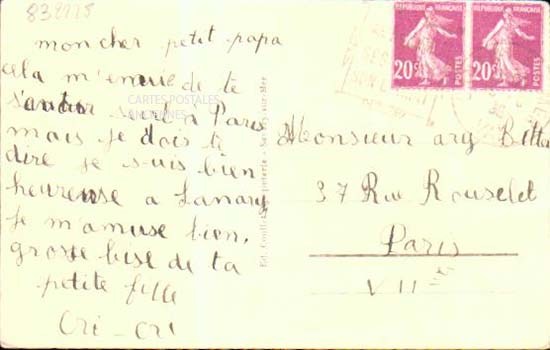 832228
mon cher petit papa
cela m'ennuie de te
seul à Paris
mais je dois te
dire je suis bien
heureuse a Sanary
je m'amuse bien.
grosse bise de ta
petite fille
Cri-Cri
CARTES POSTALES
ANCIENNES
Sanary-sur-Mer
REPUBLIQUE FRANÇAISE
20c
POSTES
REPUBLIQUE FRANÇAISE
20c
POSTES
Monsieur
37 Rue Rousselet
Paris
VII